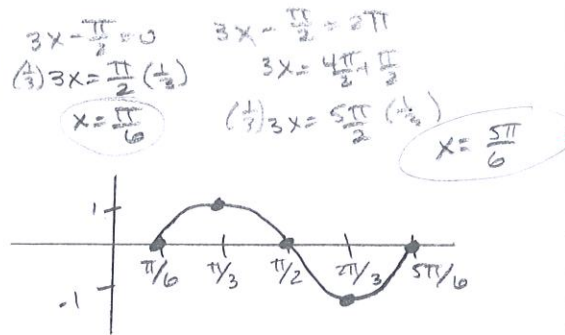 3x - π/2 = 0
(1/3) 3x = π/2 (1/3)
x = π/6
3x - π/2 = 2π
3x = 4π/2 + π/2
(1/3) 3x = 5π/2 (1/3)
x = 5π/6
1
π/6 π/3 π/2 2π/3 5π/6
-1